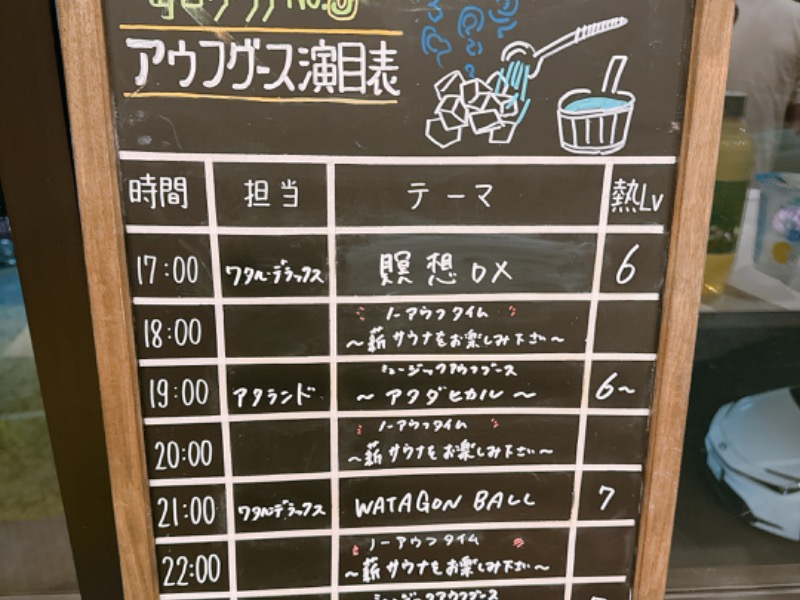 アウフグース演目表
時間 担当 テーマ 熱Lv
17:00 ワタル・デラックス 瞑想DX 6
ノーアウフタイム
18:00 ～薪サウナをお楽しみ下さい～
ミュージックアウフグース
19:00 アタランド ～アクダヒカル～ 6～
ノーアウフタイム
20:00 ～薪サウナをお楽しみ下さい～
21:00 ワタル・デラックス WATAGON BALL 7
ノーアウフタイム
22:00 ～薪サウナをお楽しみ下さい～
ミュージックアウフグース